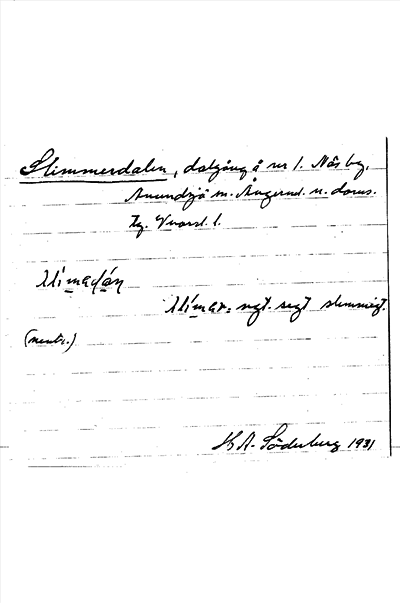 Slimmerdalen, dalgång å nr 1. Näs by,
Anundsjö sn. Ångerml. n. doms.
tg. V-norrl. l.
slímadáɳ
slímar= ngt. segt slemmigt.
(neutr.)
K A. Söderberg 1931